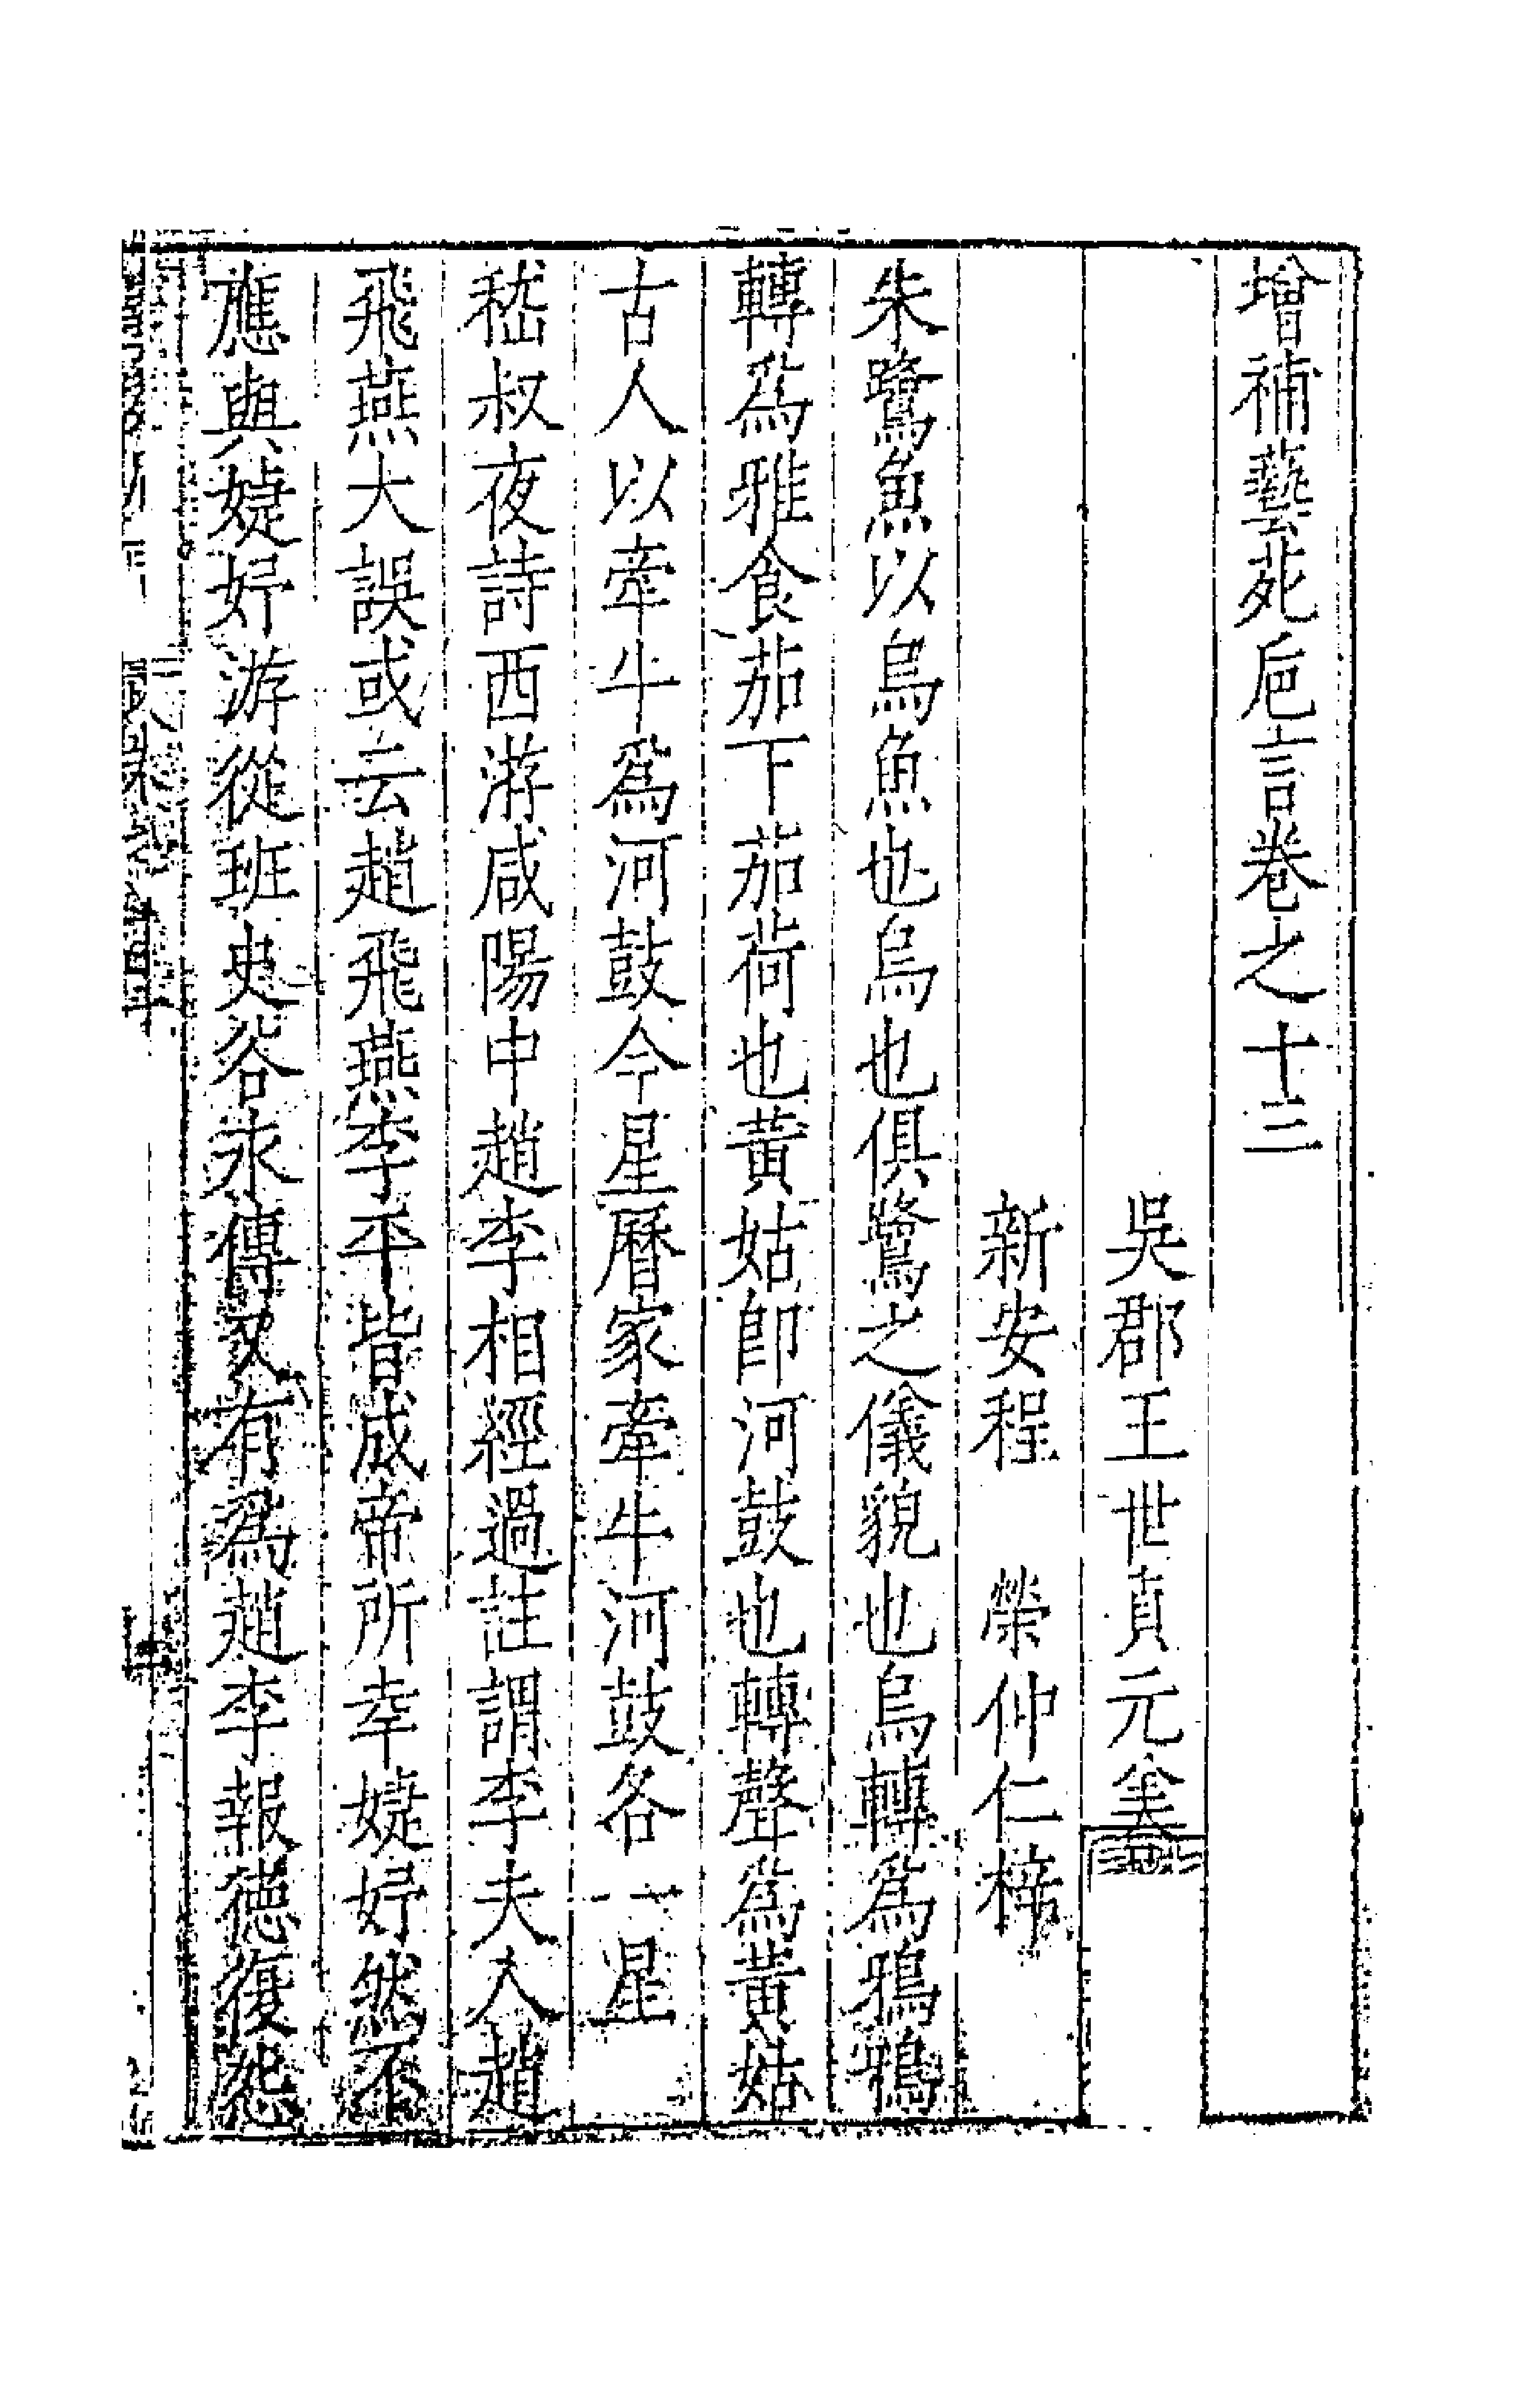 增補藝苑巵言卷之十三
吳郡王世貞元美
新安程 榮仲仁梓
朱鷺魚以烏魚也烏也俱鷺之儀貌也烏轉為鴉鴉
轉為雅食茄下茄荷也黃姑即河鼓也轉聲為黃姑
古人以牽牛為河鼓今星曆家牽牛河鼓各一星
嵇叔夜詩西游咸陽中趙李相經過註謂李夫人趙
飛燕大誤或云趙飛燕李平皆成帝所幸婕妤然不
應與婕妤游從班史谷永傳又有為趙李報德復怨